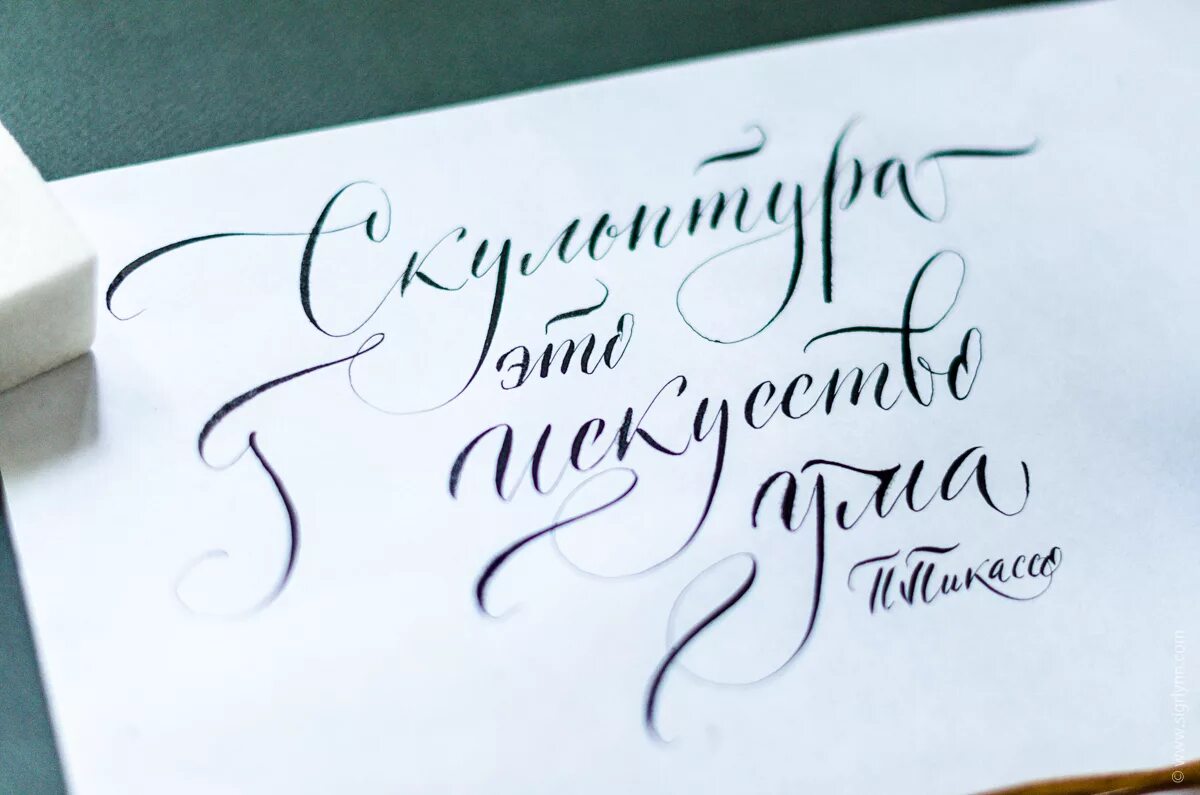 Скульптура
это
искусство
ума
П.Пикассо
© www.sigrlynn.com